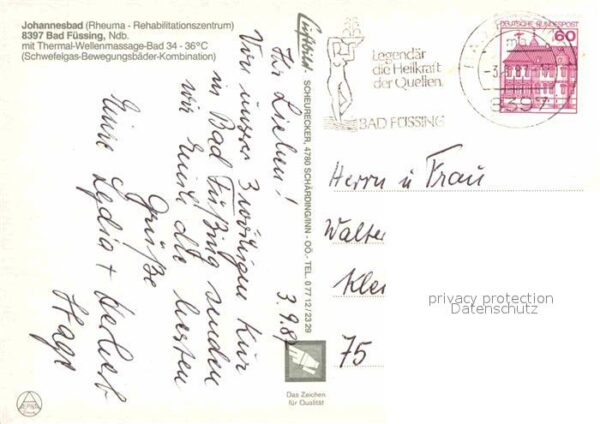 Johannesbad (Rheuma - Rehabilitationszentrum)
8397 Bad Füssing, Ndb.
mit Thermal-Wellenmassage-Bad 34 - 36°C
(Schwefelgas-Bewegungsbäder-Kombination)
3.9.87
Ihr Lieben!
Von unser 3 wöchigen Kur
in Bad Füßing senden
wir Euch die besten
Grüße
Eure Lydia + Herbert
Luftbild - SCHEURECKER, 4780 SCHÄRDING/INN - OÖ.- TEL. 0 77 12 / 23 29
Das Zeichen
für Qualität
Legendär
die Heilkraft
der Quellen.
BAD FÜSSING
DEUTSCHE BUNDESPOST
60
8397
Herrn u Frau
Walter
75
privacy protection
Datenschutz